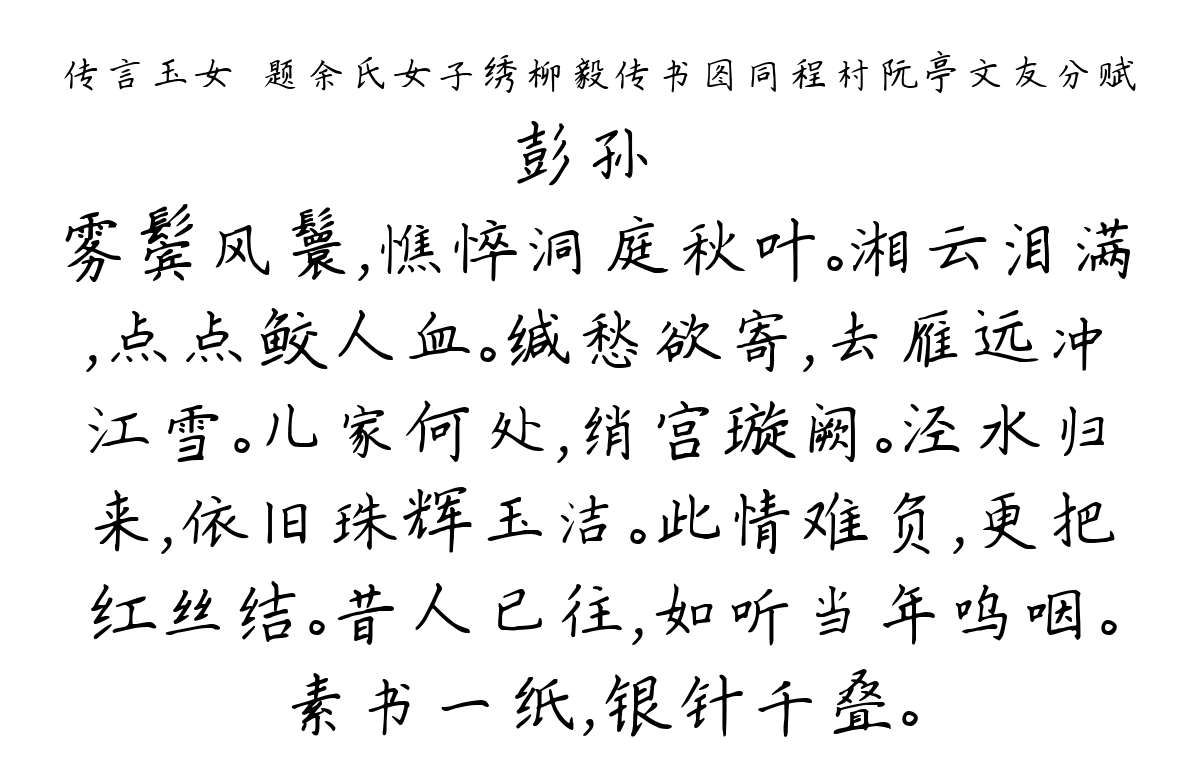 传言玉女 题余氏女子绣柳毅传书图同程村阮亭文友分赋
彭孙
雾鬓风鬟,憔悴洞庭秋叶。湘云泪满
,点点鲛人血。缄愁欲寄,去雁远冲
江雪。儿家何处,绡宫璇阙。泾水归
来,依旧珠辉玉洁。此情难负,更把
红丝结。昔人已往,如听当年呜咽。
素书一纸,银针千叠。